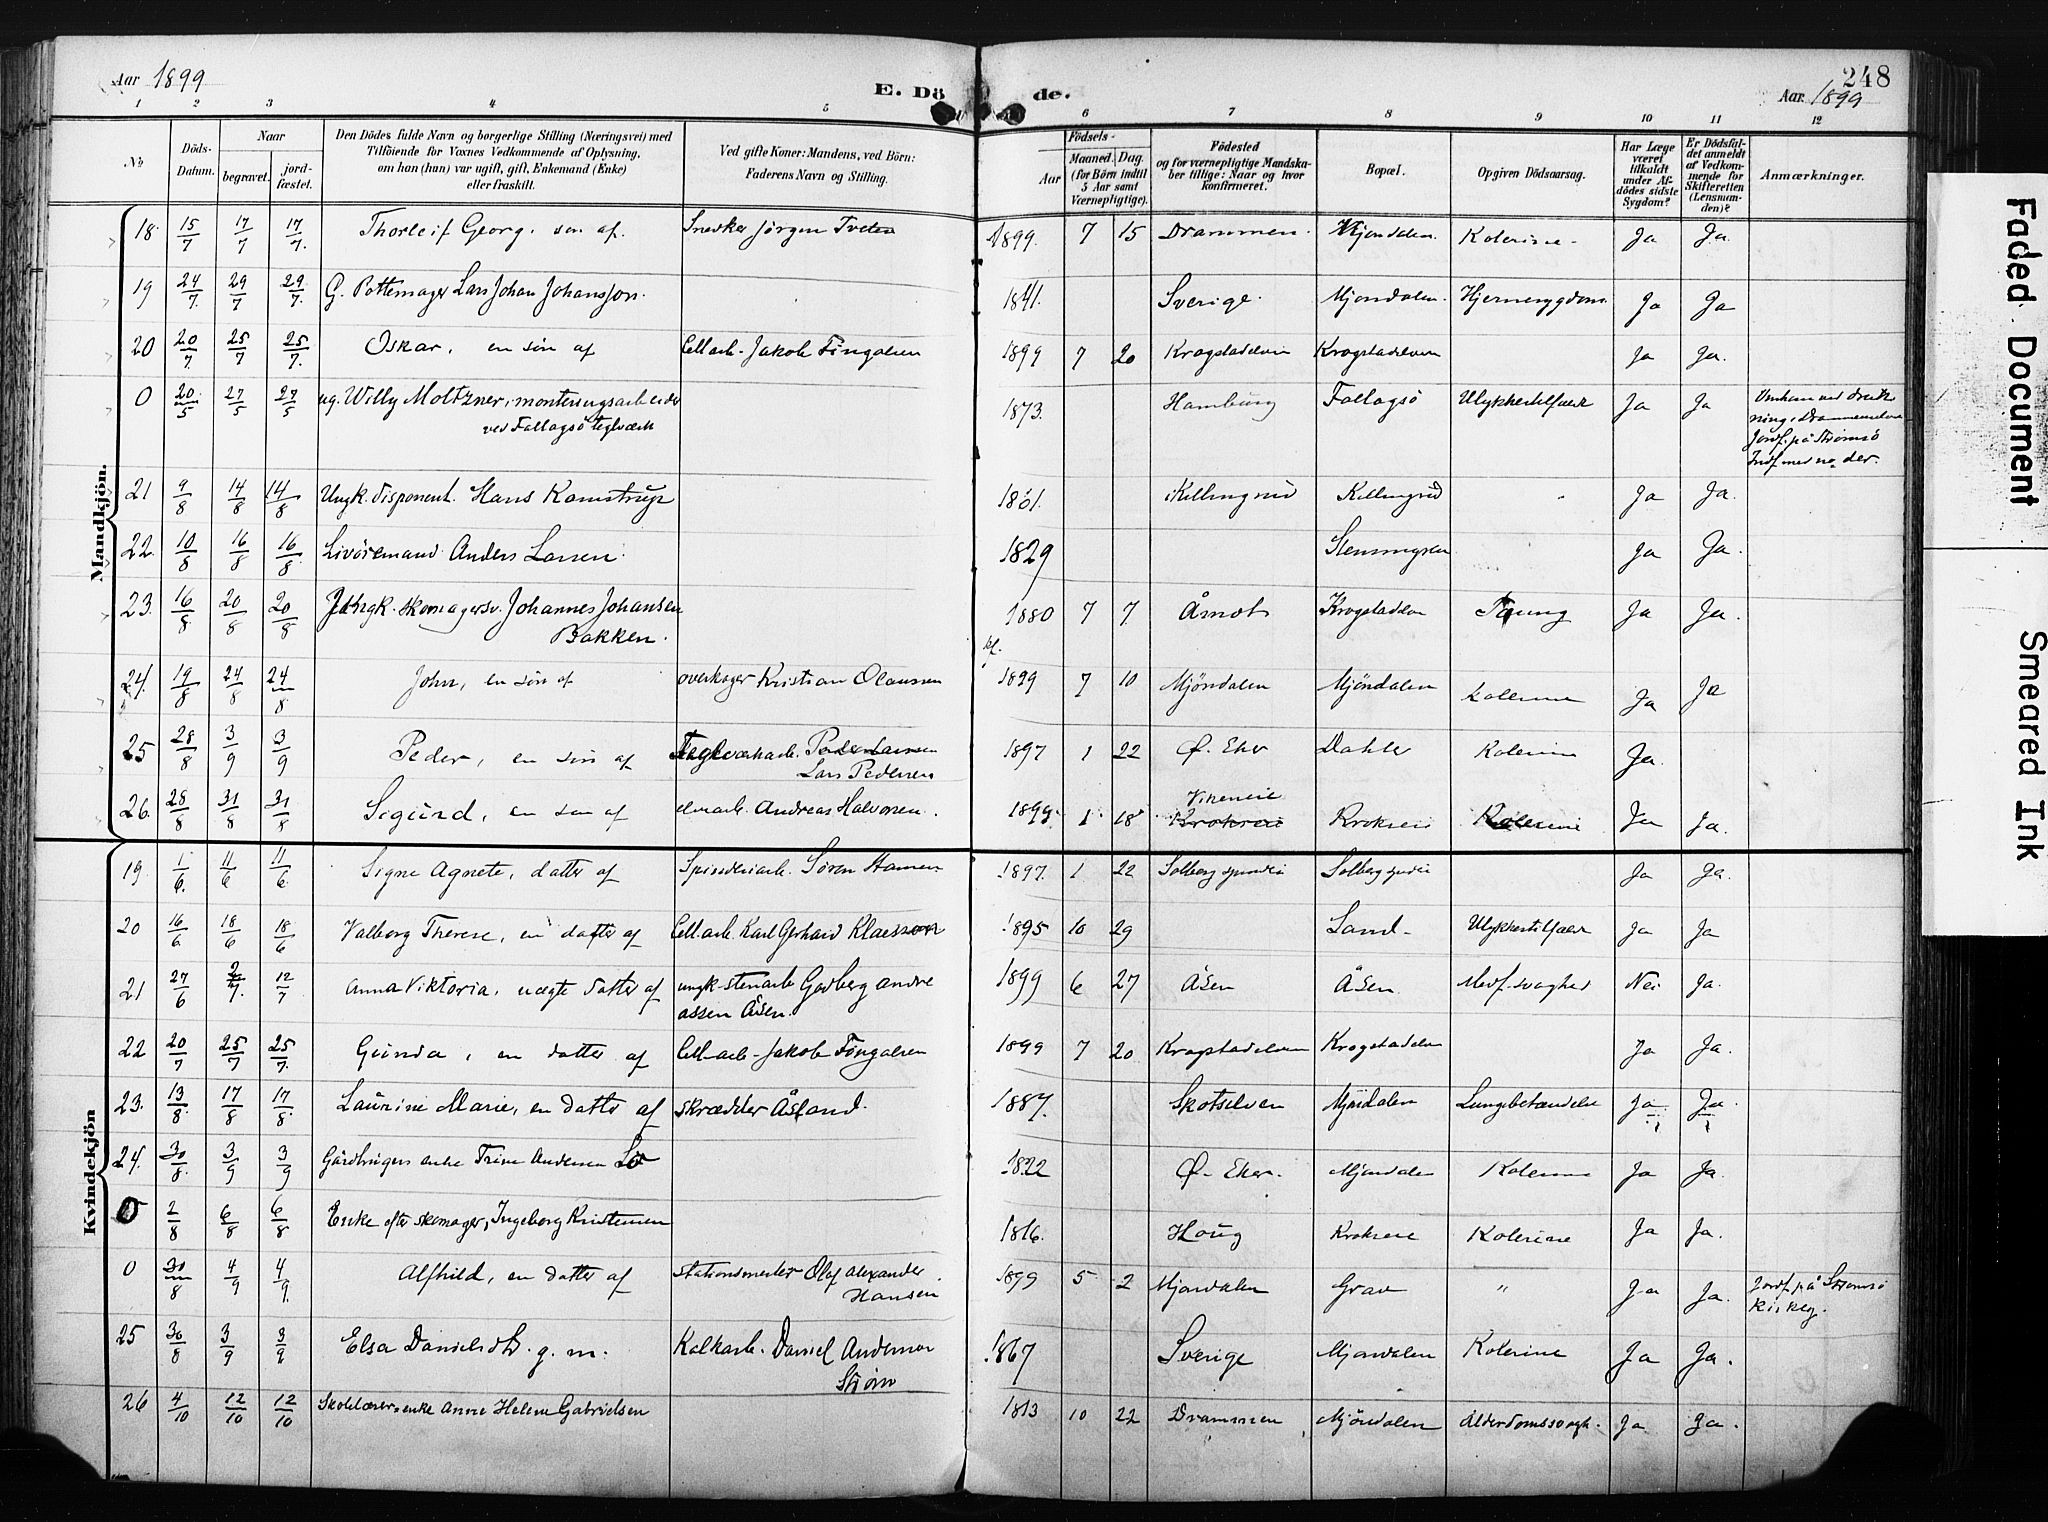 Aar 1899
E. Döde.
248
Aar 1899
1 2 3 4 5 6 7 8 9 10 11 12
No
Döds-Datum.
Naar
begravet.
jordfæstet.
Den Dödes fulde Navn og borgerlige Stilling (Næringsvei) med Tilföiende for Voxnes Vedkommende af Oplysning, om han (hun) var ugift, gift, Enkemand (Enke) eller fraskilt.
Ved gifte Koner: Mandens, ved Börn: Faderens Navn og Stilling.
Födsels-
Aar
Maaned. Dag.
(for Börn indtil 5 Aar samt Værnepligtige).
Födested og for værnepligtige Mandskaber tillige: Naar og hvor konfirmeret.
Bopæl.
Opgiven Dödsaarsag.
Har Læge været tilkaldt under Afdödes sidste Sygdom?
Er Dödsfaldet anmeldt af Vedkommende for Skifteretten (Lensmanden)?
Anmærkninger.
Mandkjön.
18. 15/7 17/7 17/7. Thorleif Georg. sön af. Snedker Jörgen Tveten 1899. 7 15 Drammen. Mjöndalen. Kolerine. Ja Ja.
19 24/7. 29/7 29/7. G. Pottemager Lars Johan Johansson. 1841. Sverige. Mjöndalen. Hjernesygdom. Ja Ja
20 20/7. 25/7 25/7. Oskar, en sön af Cell.arb. Jakob Fingalsen 1899 7 20 Krogstadelven Krogstadelven Ja Ja.
0 20/5 27/5 27/5 ug. Willy Moltzner, monteringsarbeider ved Follagsö teglværk 1873. Hamburg Follagsö Ulykkestilfælde Ja Ja
Jordf. på Strömsö
21 9/8 14/8 14/8 Ungk. Disponent. Hans Komstrup 1861. Killingrud Killingrud " Ja Ja.
22. 10/8 16/8 16/8. Livöremand Anders Larsen. 1829 Stenningsen Ja Ja.
23. 16/8 20/8 20/8 Ungk. skomagersv. Johannes Johansen Bakken. 1880 7 7 Åmot Krogstadelven Ja Ja.
24. 19/8 24/8 24/8 John, en sön af overkoger Kristian Olaussen 1899 7 10 Mjöndalen Mjöndalen Kolerine Ja Ja
25 28/8 3/9 3/9 Peder, en sön af Teglværkarb. Peder Larsen
Lars Pedersen 1897 1 22 Ö. Eker Dahler Kolerine Ja.
26. 28/8 31/8 31/8 Sigurd, en sön af elvearb. Andreas Halvorsen. 1899. 1 18 Vikerveie
Krokveie Krokveie Kolerine Ja Ja.
Kvindekjön
19. 1/6. 11/6 11/6. Signe Agnete, datter af Spinderiarb. Sören Hansen 1897. 1 22 Solberg spinderi Solberg spinderi Ja Ja.
20 16/6 18/6 18/6 Valborg Therese, en datter af Cell.arb. Karl Gerhard Klaesson 1895 10 29 Sand. Ulykkestilfælde Ja Ja
21 27/6 2/7. 12/7 Anna Viktoria, uægte datter af ungk. stenarb. Godberg Andreassen Åsen. 1899 6 27 Åsen Åsen Medf. svaghed Nei Ja.
22 20/7 25/7 25/7. Gunda, en datter af Cell.arb. Jakob Fingalsen 1899 7 20. Krogstadelven Krogstadelven Ja Ja.
23. 13/8. 17/8 17/8. Laurine Marie, en datter af skrædder Åsland. 1887. Skotselven Mjöndalen Lungebetændelse Ja Ja.
24. 30/8. 3/9 3/9 Gårdbrugers enke Trine Andersen Lö 1822 Ö. Eker. Mjöndalen Kolerine Ja Ja.
0 2/8 6/8 6/8 Enke efter skomager, Ingeborg Kristensen 1816. Houg Krokveie Kolerine Ja Ja.
0 30/8 4/9 4/9. Alfhild, en datter af stationsmester Olaf Alexander Hansen 1899 5 2 Mjöndalen Grav " Ja Ja. Jordf. på Strömsö kirkeg.
25 30/8 3/9 3/9 Elsa Danielsd. g. m. Kalkarb. Daniel Anderson Ström 1867 Sverige Mjöndalen Kolerine Ja Ja.
26 4/10 12/10 12/10 Skolelærerenke Anne Helene Gabrielsen 1813 10 22 Drammen Mjöndalen Alderdomssvagh. Ja Ja.
Faded Document
Smeared Ink